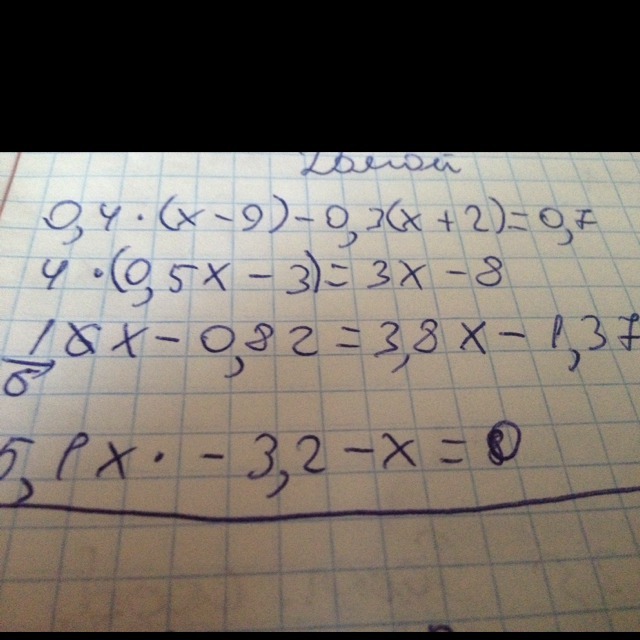 0,4·(x-9)-0,3(x+2)=0,7
4·(0,5x-3)=3x-8
16x-0,82=3,8x-1,37
5,1x·-3,2-x=0